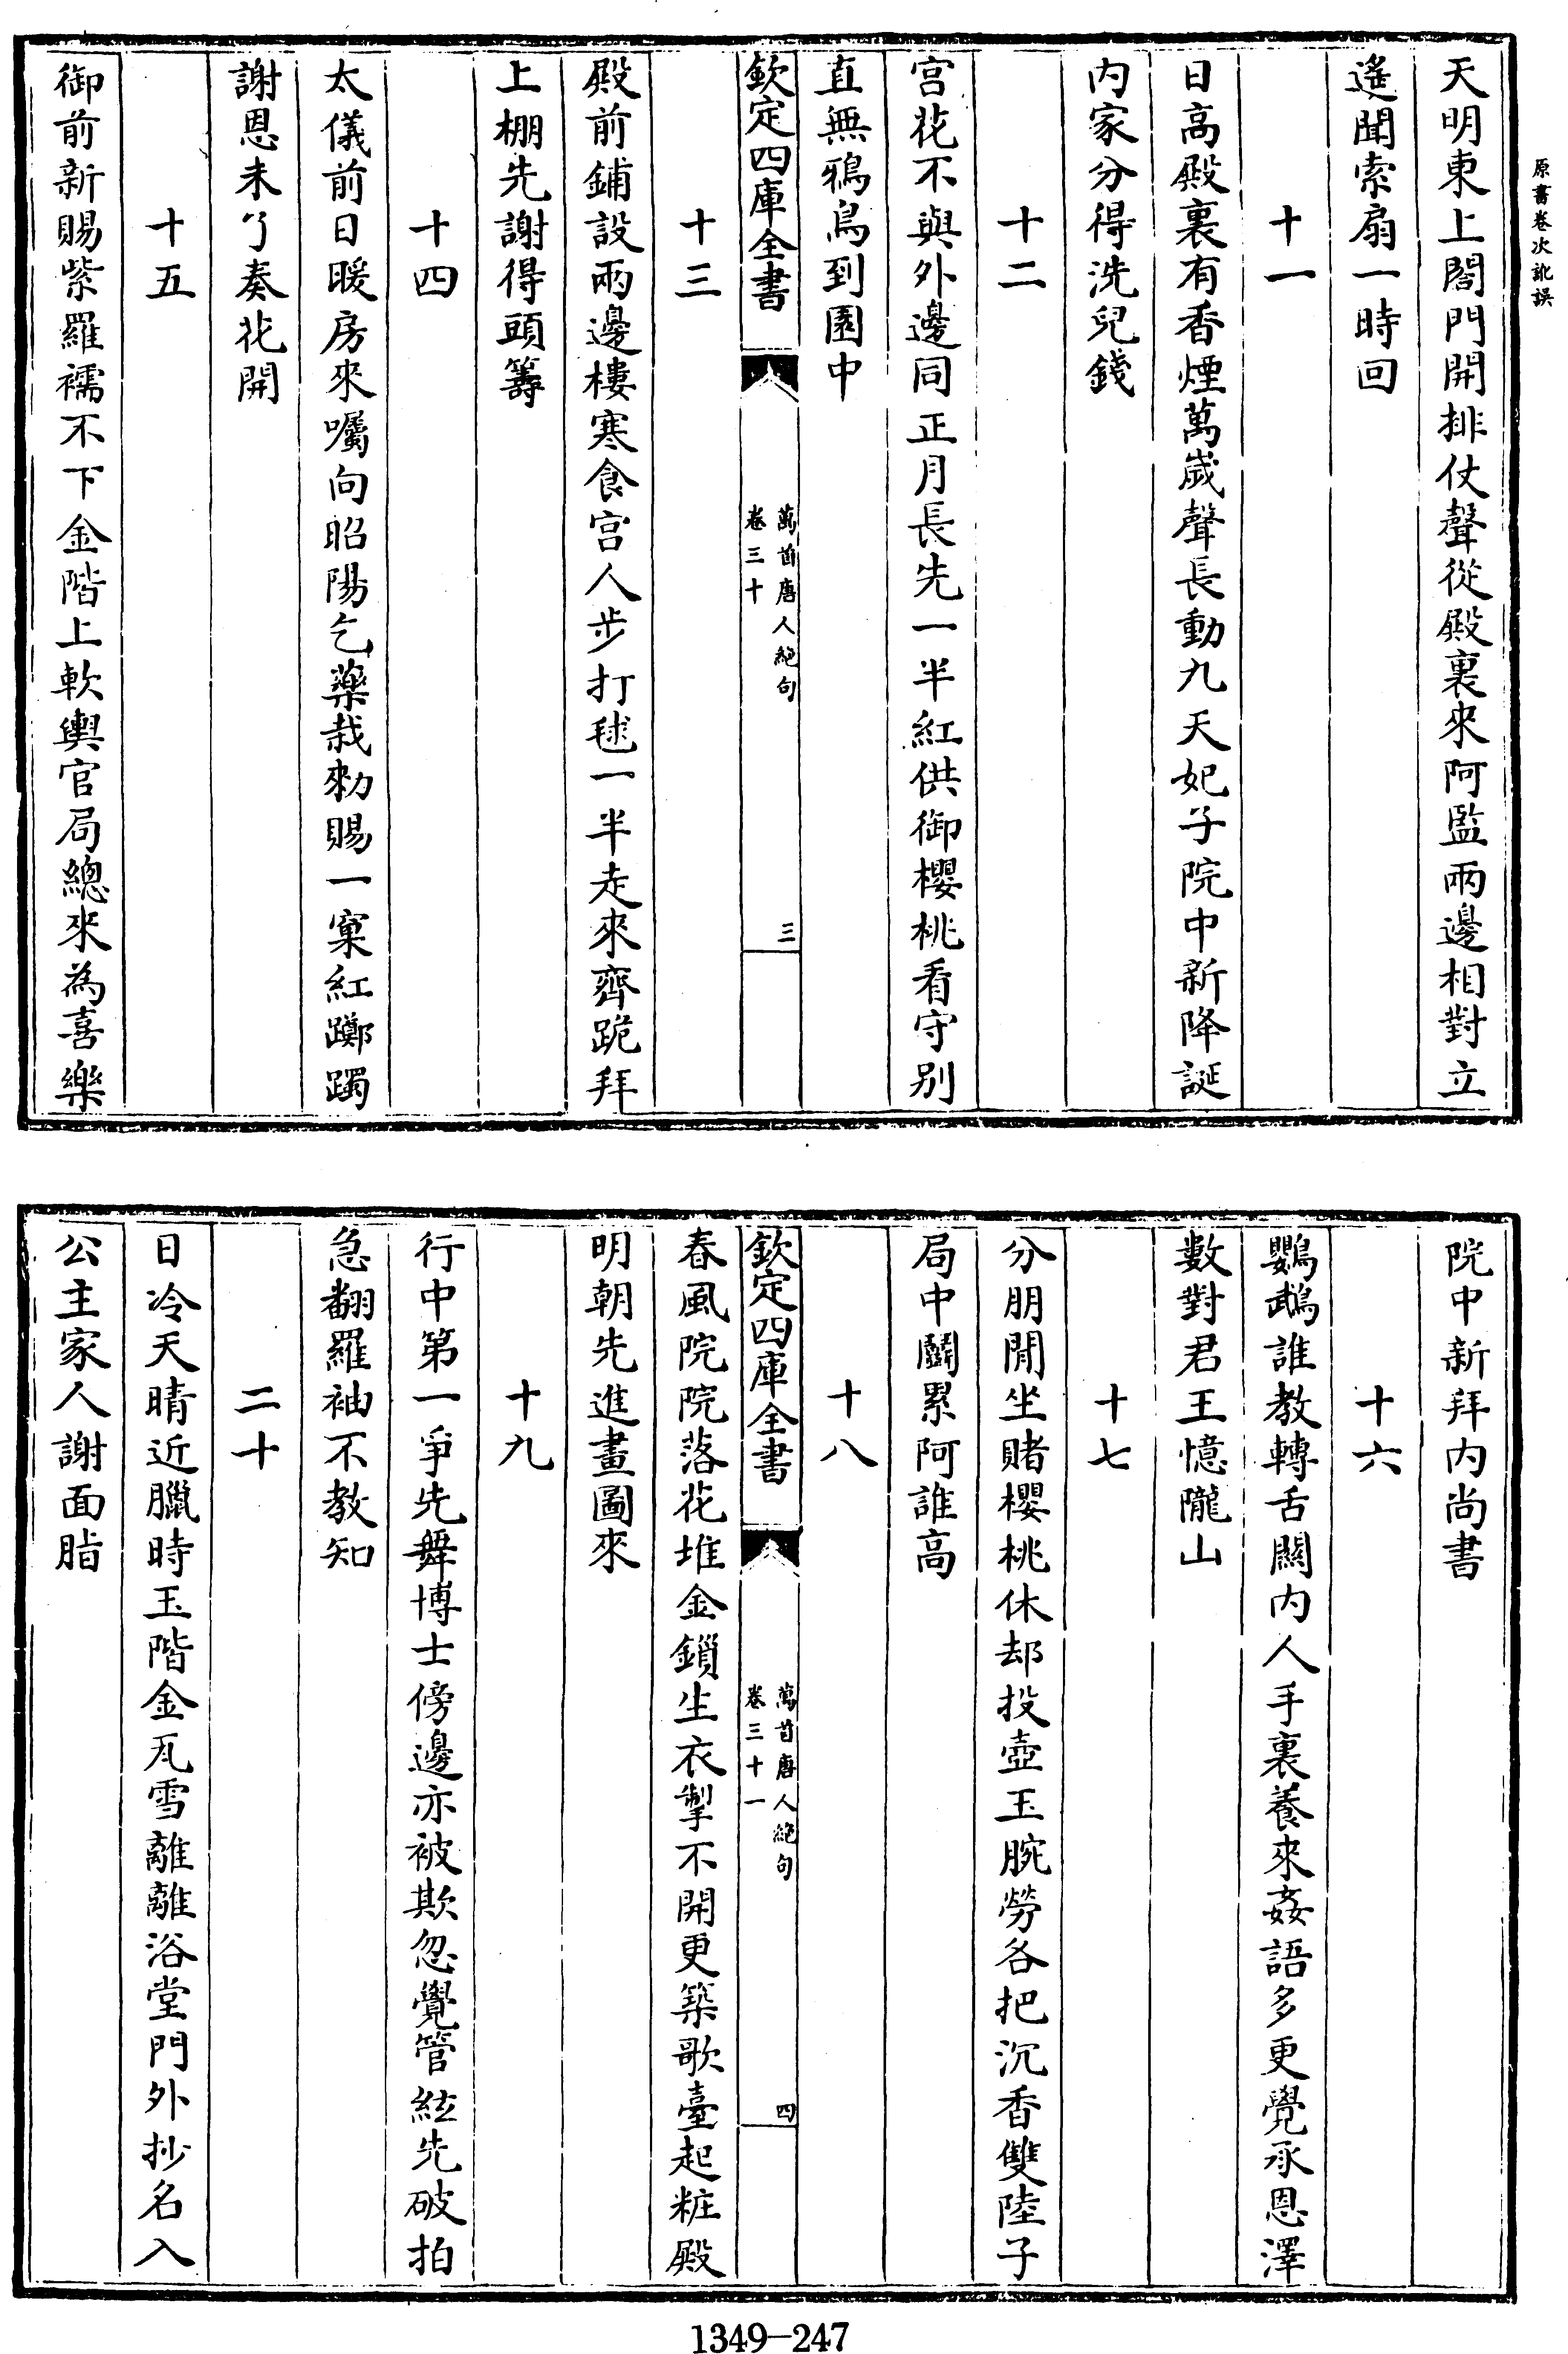 原書卷次訛誤
天明東上閤門開排仗聲從殿裏來阿監兩邊相對立
遙聞索扇一時回
十一
日高殿裏有香煙萬歲聲長動九天妃子院中新降誕
内家分得洗兒錢
十二
宫花不與外邊同正月長先一半紅供御櫻桃看守别
直無鴉鳥到園中
欽定四庫全書
萬首唐人絕句
卷三十
三
十三
殿前鋪設兩邊樓寒食宫人步打毬一半走來齊跪拜
上棚先謝得頭籌
十四
太儀前日暖房來囑向昭陽乞藥栽勑賜一窠紅躑躅
謝恩未了奏花開
十五
御前新賜紫羅襦不下金階上軟輿官局總來為喜樂
院中新拜内尚書
十六
鸚鵡誰教轉舌關内人手裏養來姦語多更覺承恩澤
數對君王憶隴山
十七
分朋閒坐賭櫻桃休却投壺玉腕勞各把沉香雙陸子
局中鬬累阿誰高
十八
欽定四庫全書
萬首唐人絕句
卷三十一
四
春風院院落花堆金鎖生衣掣不開更築歌臺起粧殿
明朝先進畫圖來
十九
行中第一爭先舞博士傍邊亦被欺忽覺管絃先破拍
急翻羅袖不教知
二十
日冷天晴近臘時玉階金瓦雪離離浴堂門外抄名入
公主家人謝面脂
1349—247